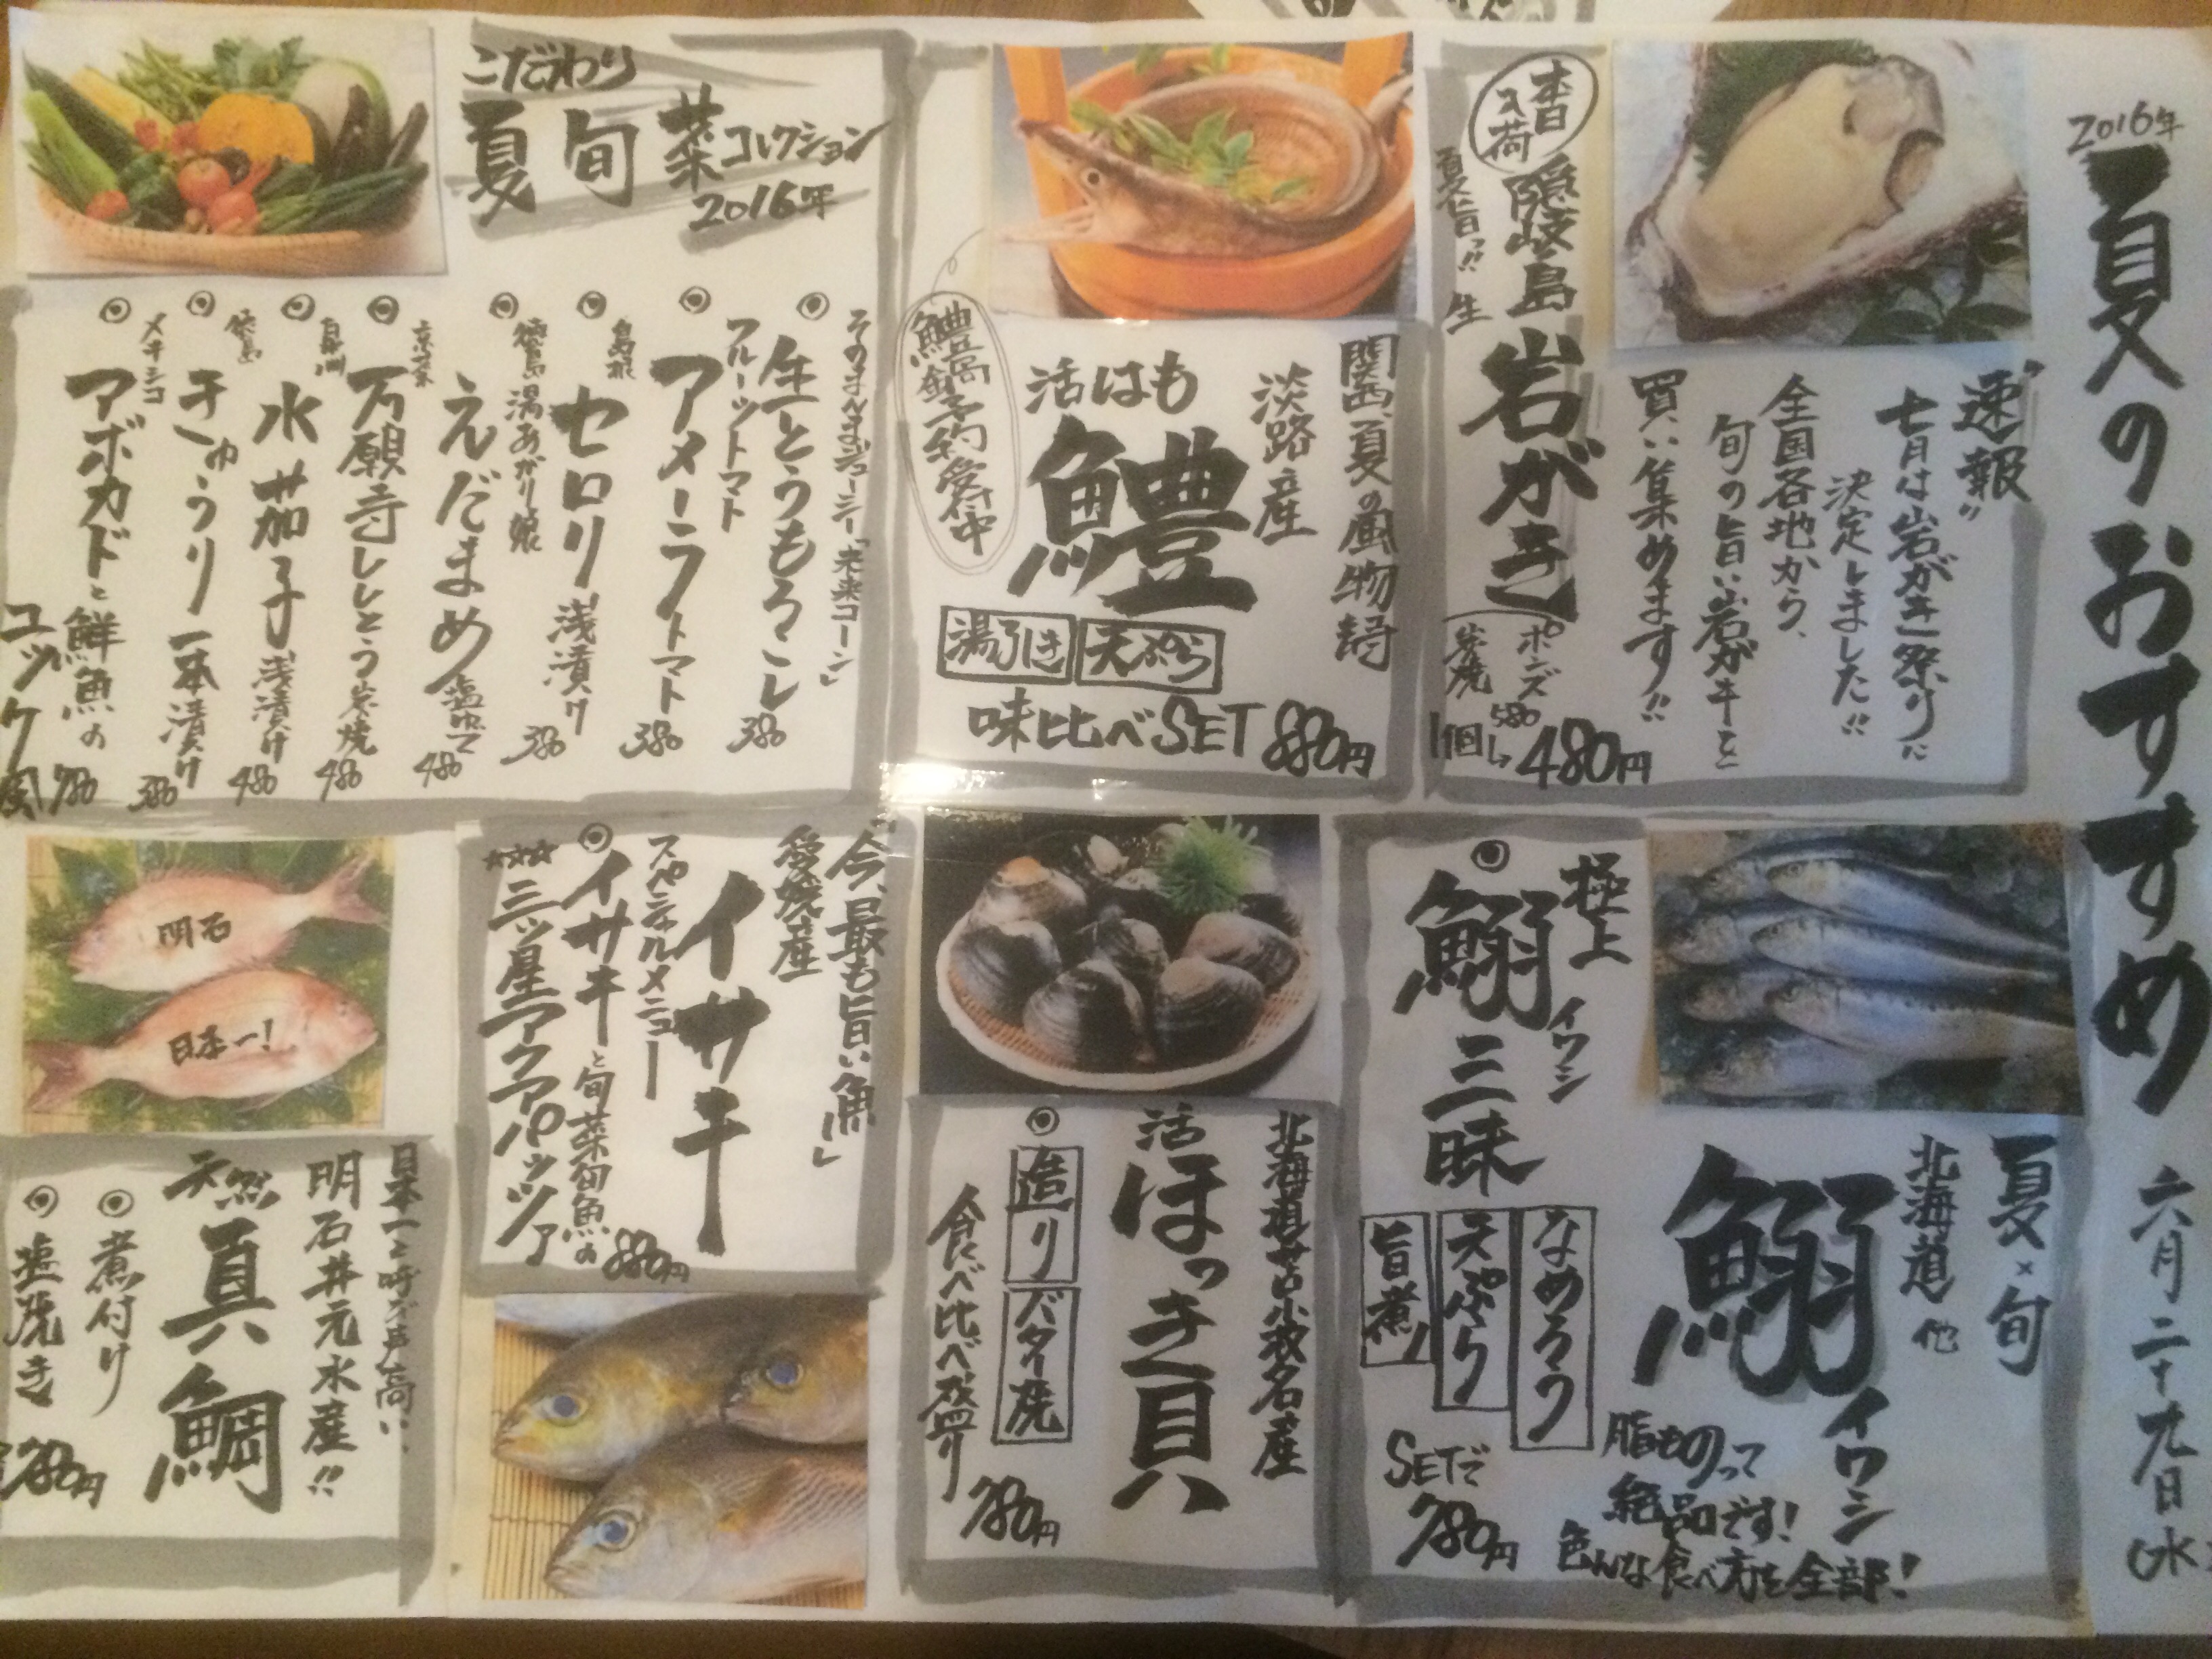 2016年
夏のおすすめ
六月二十九日(水
速報"
七月は岩がき祭りに
決定しました!!
全国各地から、
旬の旨い岩ガキを
買い集めます!!
本日入荷
隠岐島
夏旨っ!!
生
岩がき
ポンズ
炭焼
580
1個 480円
関西、夏の風物詩
淡路産
活はも
鱧
湯引き
天ぷら
味比べSET 880円
鱧高
予約受付中
こだわり
夏旬菜コレクション
2016年
そのまんまジューシー「未来コーン」
◎生とうもろこし 380
フルーツトマト
◎アメーラトマト 380
島根
◎セロリ浅漬け 380
徳島 湯あがり娘
◎えだまめ塩ゆで 480
京菜
◎万願寺ししとう炭焼 480
泉州
◎水茄子浅漬け 480
徳島
◎きゅうり一本漬け 380
メキシコ
◎アボカドと鮮魚の
ユッケ風 780
夏×旬
北海道 他
鰯
イワシ
脂ものって
絶品です!
色んな食べ方を全部!
極上
イワシ
◎鰯三昧
なめろう
天ぷら
旨煮
SETで
780円
北海道苫小牧名産
活ほっき貝
◎造り
バター焼
食べ比べ盛り
780円
「今、最も旨い魚」
愛媛産
イサキ
スペシャルメニュー
◎イサキと旬菜旬魚の
☆☆☆三ッ星アクアパッツァ
880円
明石
日本一!
日本一と呼び声高い、
明石井元水産!!
天然真鯛
◎煮付け
◎塩焼き
780円